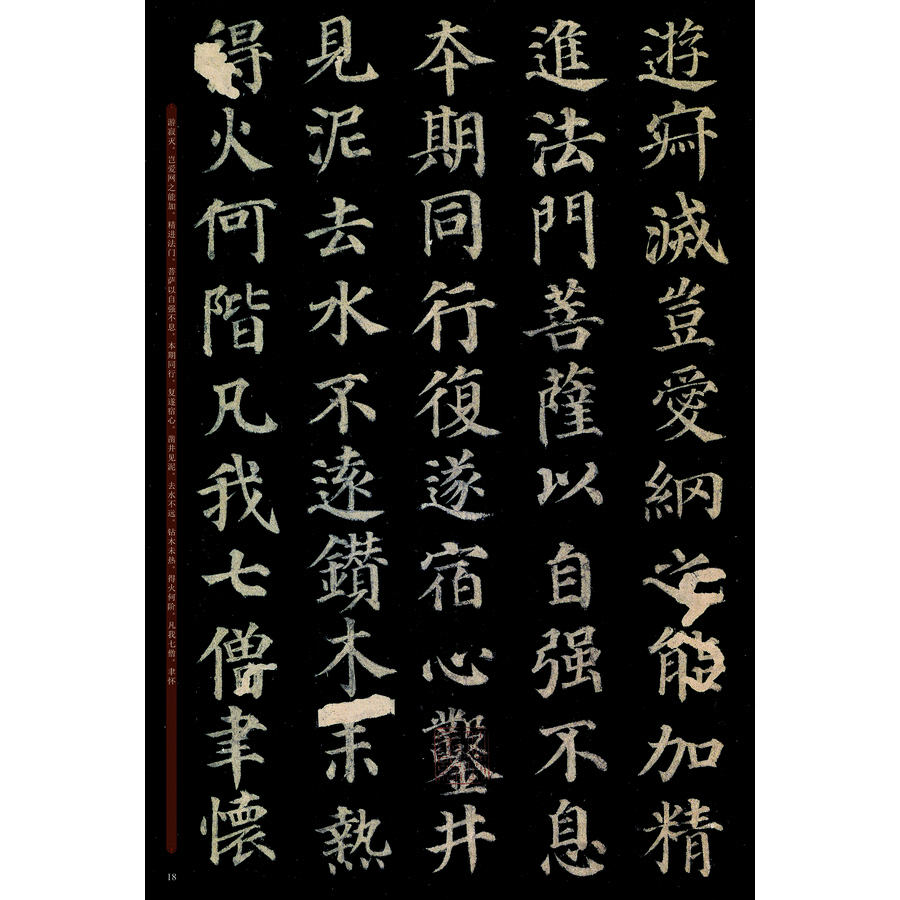 遊㝛滅豈愛網之能加精
進法門菩薩以自强不息
本期同行復遂宿心鑿井
見泥去水不遠鑽木未熱
得火何階凡我七僧聿懷
游寂灭，岂爱网之能加。精进法门，菩萨以自强不息。本期同行，复遂宿心。凿井见泥，去水不远，钻木未热，得火何阶。凡我七僧，聿怀
18